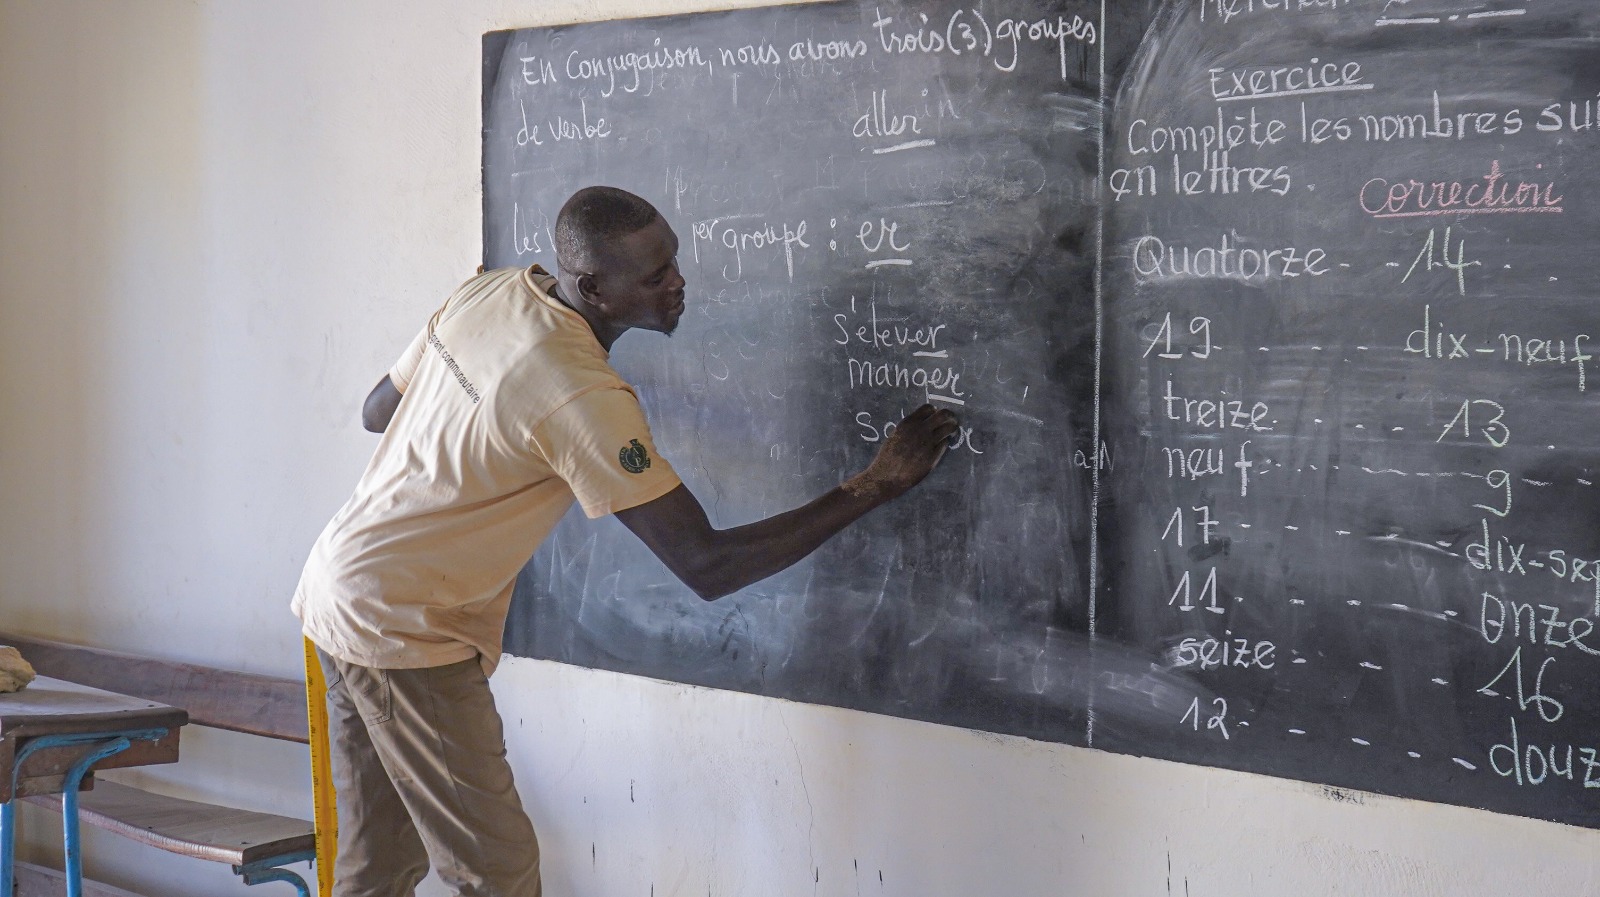 En Conjugaison, nous avons trois (3) groupes
de verbe
aller
les
1er groupe : er
s'élever
manger
Exercice
Complète les nombres
en lettres.
Correction
Quatorze - - 14 . .
19 - - - - dix-neuf
treize . . . - 13 .
neuf . . . . - - - 9 - -
17 - - - - dix-
11 - - - - onze
seize - - - - 16
12 - - - - -
communautaire